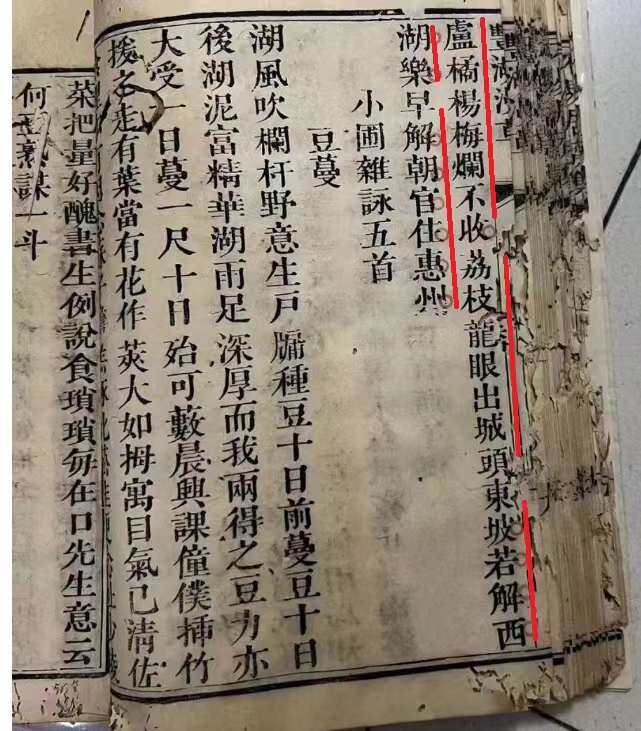 豐湖漫草
盧橘楊梅爛不收荔枝龍眼出城頭東坡若解西
湖樂早解朝官住惠州
小圃雜詠五首
豆蔓
湖風吹欄杆野意生戶牖種豆十日前蔓豆十日
後湖泥富精華湖雨足深厚而我兩得之豆力亦
大受一日蔓一尺十日殆可藪晨興課僮僕揷竹
援之走有葉當有花作莢大如拇寓目氣已清佐
菜把量好醜書生例說食瑣瑣每在口先生意云
何烹謀一斗